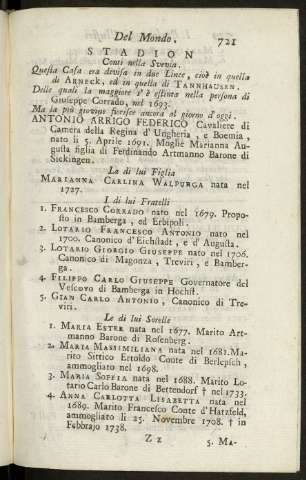 Del Mondo. 721
STADION
Conti nella Svevia.
Questa Casa era divisa in due Linee, cioè in quella
di ARNECK, ed in quella di TANNHAUSEN.
Delle quali la maggiore s'è estinta nella persona di
Giuseppe Corrado, nel 1693.
Ma la più giovine fiorisce ancora al giorno d'oggi.
ANTONIO ARRIGO FEDERICO Cavaliere di
Camera della Regina d'Ungheria, e Boemia,
nato li 5. Aprile 1691. Moglie Marianna Au-
gusta figlia di Ferdinando Artmanno Barone di
Sickingen.
La di lui Figlia
MARIANNA CARLINA WALPURGA nata nel
1727.
I di lui Fratelli
1. FRANCESCO CORRADO nato nel 1679. Propo-
sto in Bamberga, ed Erbipoli.
2. LOTARIO FRANCESCO ANTONIO nato nel
1700. Canonico d'Eichstadt, e d'Augusta.
3. LOTARIO GIORGIO GIUSEPPE nato nel 1706.
Canonico di Magonza, Treviri, e Bamber-
ga.
4. FILIPPO CARLO GIUSEPPE Governatore del
Vescovo di Bamberga in Höchst.
5. GIAN CARLO ANTONIO, Canonico di Tre-
viri.
Le di lui Sorelle
1. MARIA ESTER nata nel 1677. Marito Art-
manno Barone di Rosenberg.
2. MARIA MASSIMILIANA nata nel 1681. Ma-
rito Sittico Ertoldo Conte di Berlepsch,
ammogliato nel 1698.
3. MARIA SOFFIA nata nel 1688. Marito Lo-
tario Carlo Barone di Bettendorf † nel 1733.
4. ANNA CARLOTTA LISABETTA nata nel
1689. Marito Francesco Conte d'Hatzfeld,
ammogliato li 25. Novembre 1708. † in
Febbrajo 1738.
Zz 5. MA-